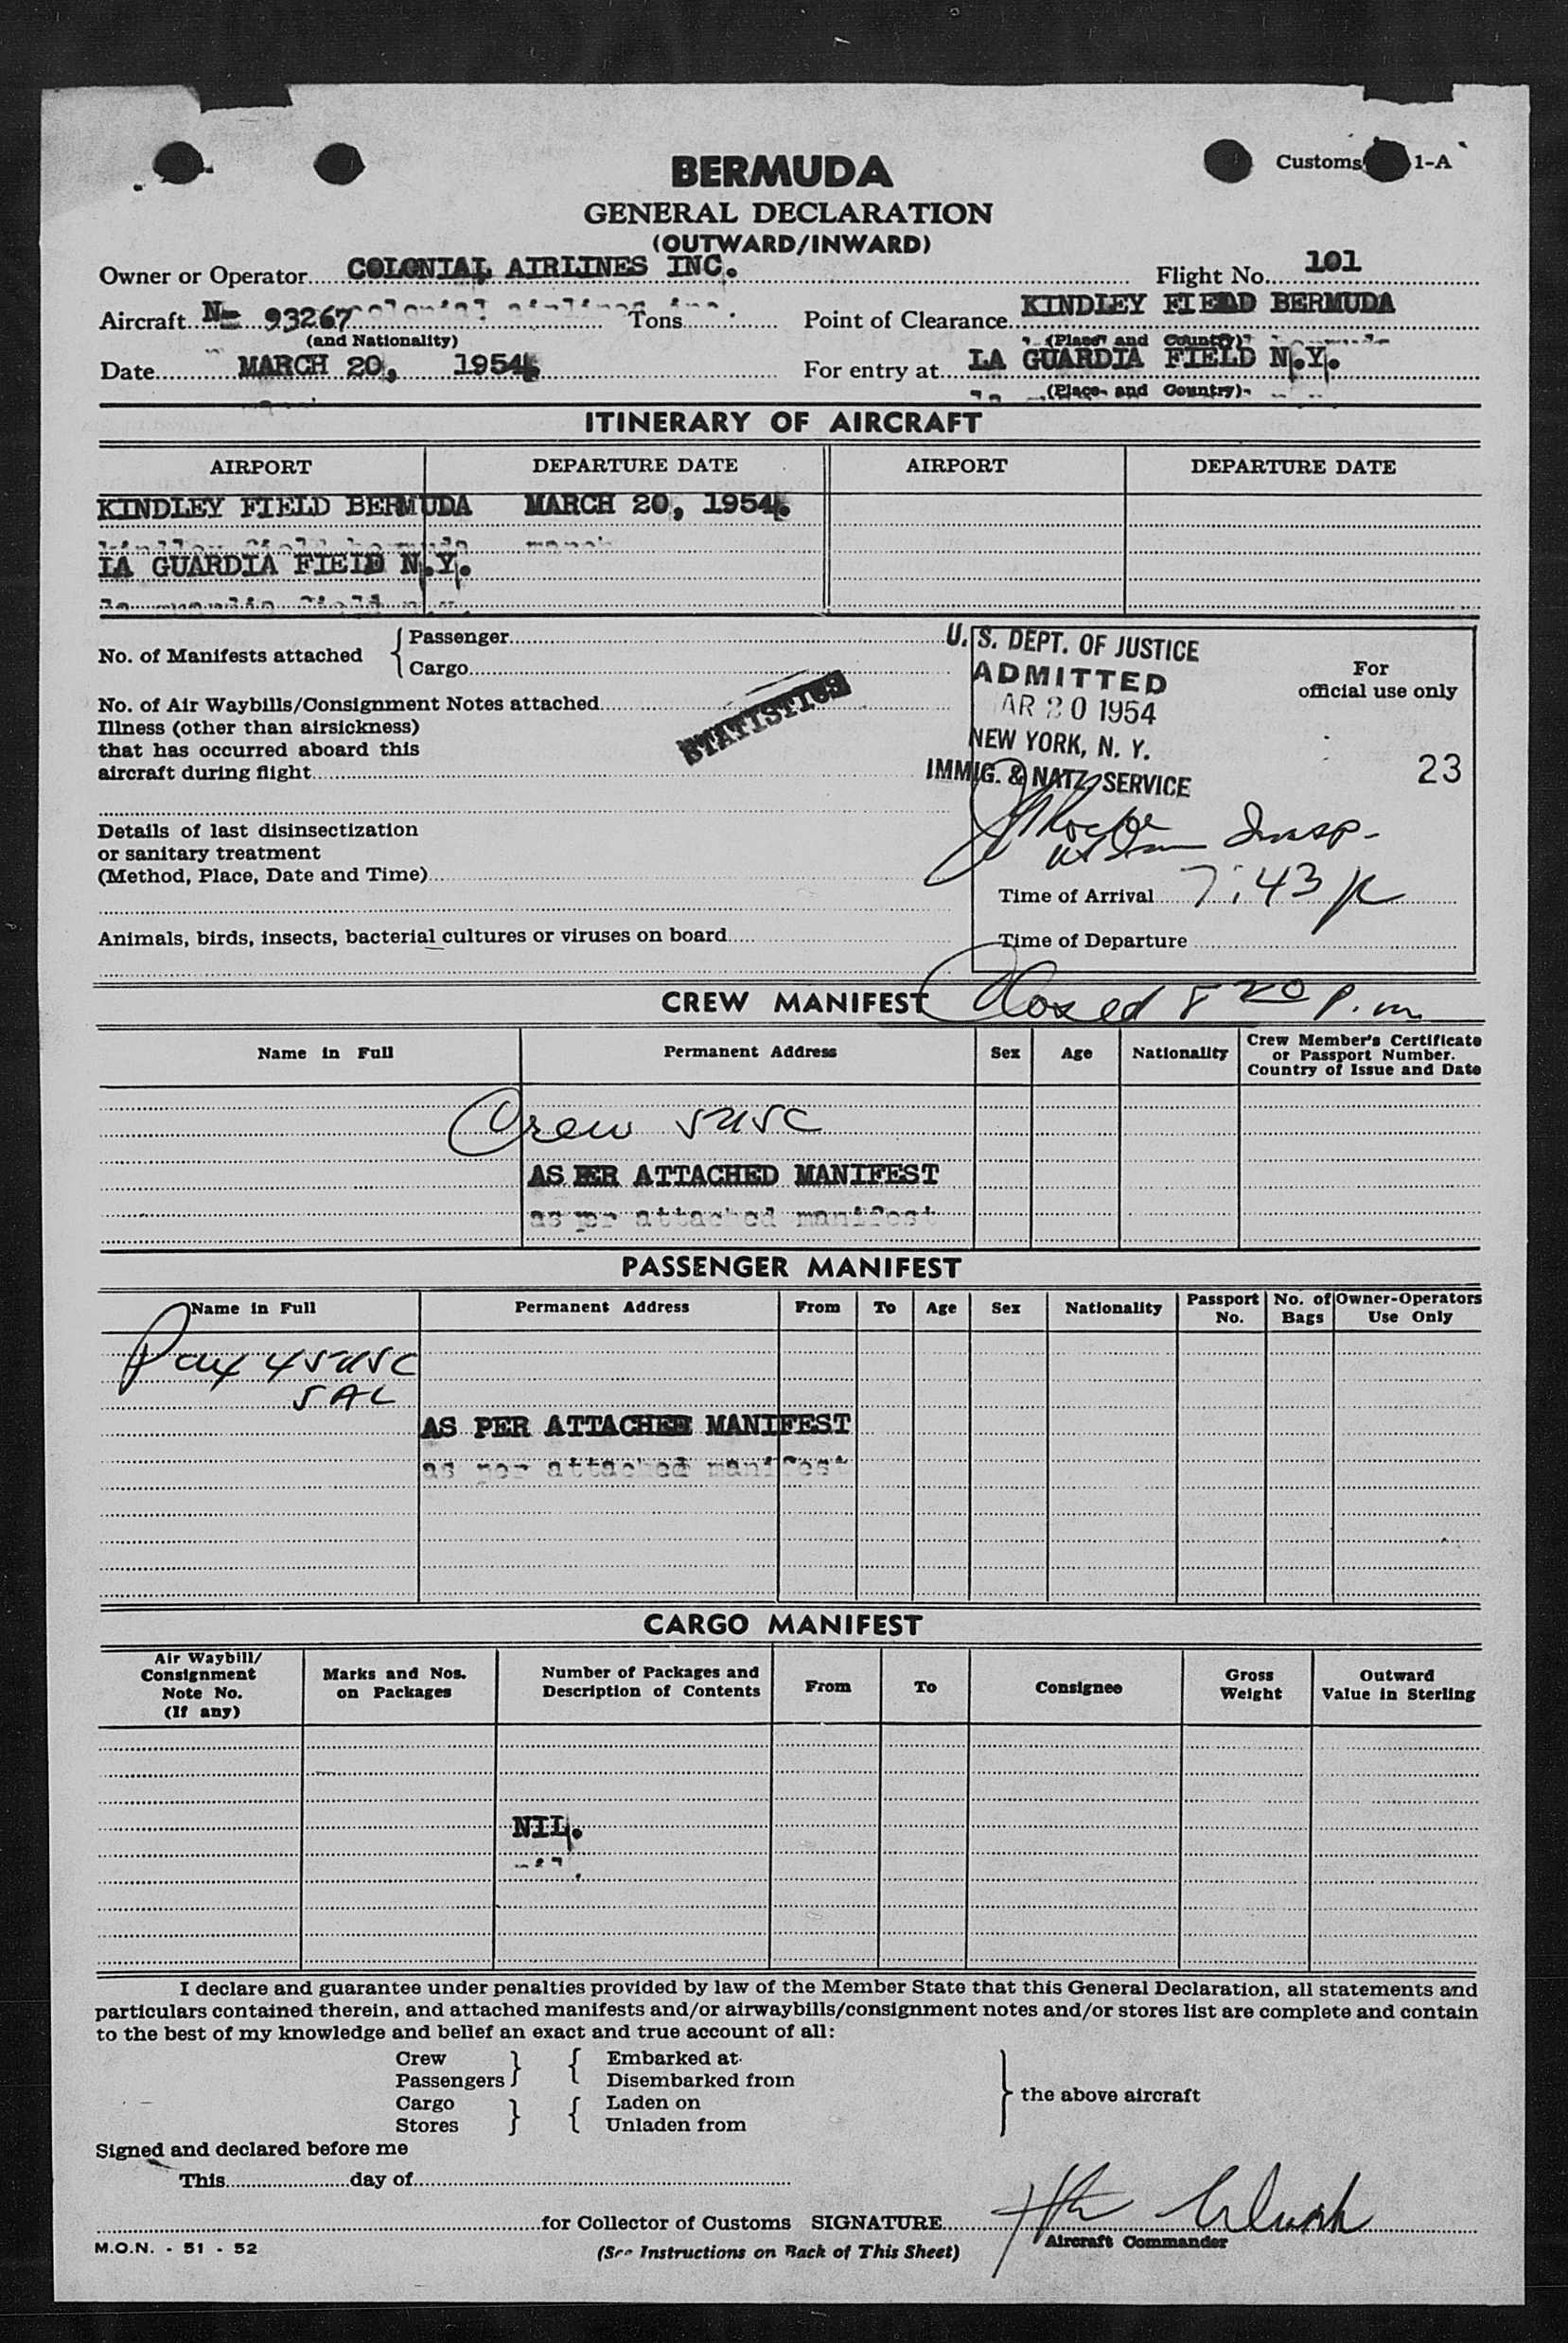 Customs 1-A
BERMUDA
GENERAL DECLARATION
(OUTWARD/INWARD)
Owner or Operator COLONIAL AIRLINES INC. Flight No. 101
Aircraft N- 93267 Tons Point of Clearance KINDLEY FIELD BERMUDA
(and Nationality) (Place and County)
Date MARCH 20, 1954. For entry at LA GUARDIA FIELD N.Y.
(Place and Country)
ITINERARY OF AIRCRAFT
AIRPORT DEPARTURE DATE AIRPORT DEPARTURE DATE
KINDLEY FIELD BERMUDA MARCH 20, 1954.
LA GUARDIA FIELD N.Y.
No. of Manifests attached { Passenger
Cargo
No. of Air Waybills/Consignment Notes attached
Illness (other than airsickness)
that has occurred aboard this
aircraft during flight
STATISTICS
Details of last disinsectization
or sanitary treatment
(Method, Place, Date and Time)
Animals, birds, insects, bacterial cultures or viruses on board
U.S. DEPT. OF JUSTICE
ADMITTED
AR 20 1954
NEW YORK, N. Y.
IMMIG. & NATZ. SERVICE
For
official use only
23
Insp.
Time of Arrival 7:43 p
Time of Departure
CREW MANIFEST Closed 8 20 P.m
Name in Full Permanent Address Sex Age Nationality Crew Member's Certificate
or Passport Number.
Country of Issue and Date
Crew 5USC
AS PER ATTACHED MANIFEST
as per attached manifest
PASSENGER MANIFEST
Name in Full Permanent Address From To Age Sex Nationality Passport No. No. of Bags Owner-Operators Use Only
Pax 45USC
5 AL
AS PER ATTACHED MANIFEST
as per attached manifest
CARGO MANIFEST
Air Waybill/
Consignment
Note No.
(If any)
Marks and Nos.
on Packages
Number of Packages and
Description of Contents
From To Consignee
Gross
Weight
Outward
Value in Sterling
NIL.
I declare and guarantee under penalties provided by law of the Member State that this General Declaration, all statements and
particulars contained therein, and attached manifests and/or airwaybills/consignment notes and/or stores list are complete and contain
to the best of my knowledge and belief an exact and true account of all:
Crew } { Embarked at
Passengers Disembarked from
Cargo } { Laden on
Stores Unladen from
} the above aircraft
Signed and declared before me
This day of
for Collector of Customs SIGNATURE
Aircraft Commander
M.O.N. - 51 - 52
(See Instructions on Back of This Sheet)